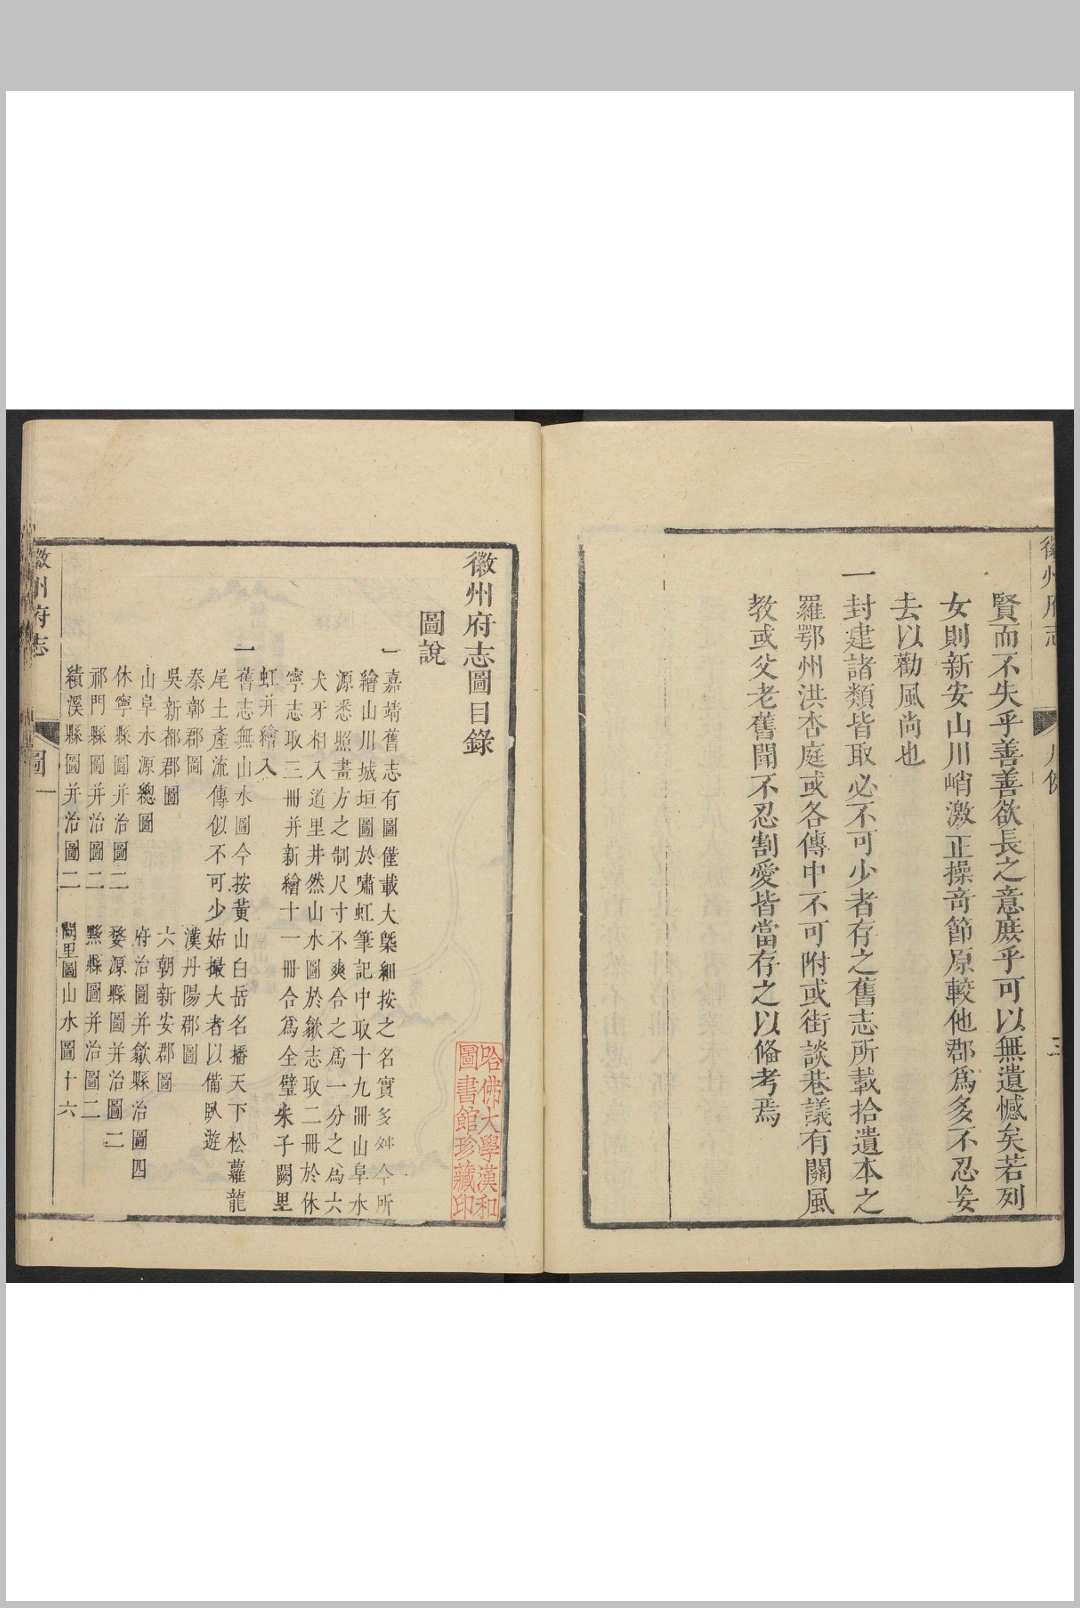 徽州府志
凡例
三
賢而不失乎善善欲長之意庶乎可以無遺憾矣若列
女則新安山川峭激正操竒節原較他郡爲多不忍妄
去以勸風尚也
一封建諸類皆取必不可少者存之舊志所載拾遺本之
羅鄂州洪杏庭或各傳中不可附或街談巷議有關風
教或父老舊聞不忍割愛皆當存之以俻考焉
徽州府志圖目錄
哈佛大學漢和
圖書館珍藏印
圖說
一嘉靖舊志有圖僅載大槩細按之名實多舛今所
繪山川城垣圖於嘯虹筆記中取十九冊山阜水
源悉照畫方之制尺寸不爽合之爲一分之爲六
犬牙相入道里井然山水圖於歙志取二冊於休
寧志取三冊并新繪十一冊合爲全璧朱子闕里
虹井繪入
一舊志無山水圖今按黃山白岳名播天下松蘿龍
尾土產流傳似不可少姑撮大者以備臥遊
秦鄣郡圖
漢丹陽郡圖
吳新都郡圖
六朝新安郡圖
山阜水源總圖
府治圖并歙縣治圖四
休寧縣圖并治圖二
婺源縣圖并治圖二
祁門縣圖并治圖二
黟縣圖并治圖二
績溪縣圖并治圖二
闕里圖山水圖十六
徽州府志
圖
一